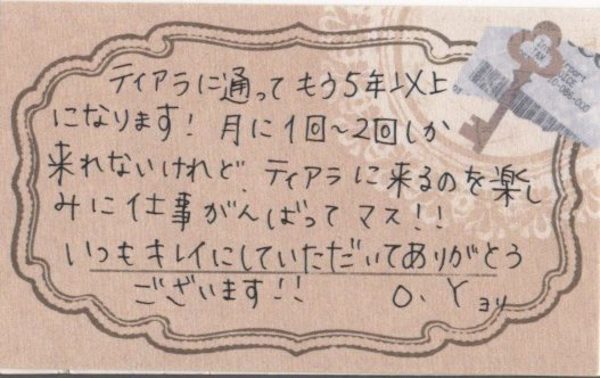 ティアラに通ってもう5年以上
になります! 月に1回~2回しか
来れないけれど、ティアラに来るのを楽し
みに仕事がんばってマス!!
いつもキレイにしていただいてありがとう
ございます!! O.Yより